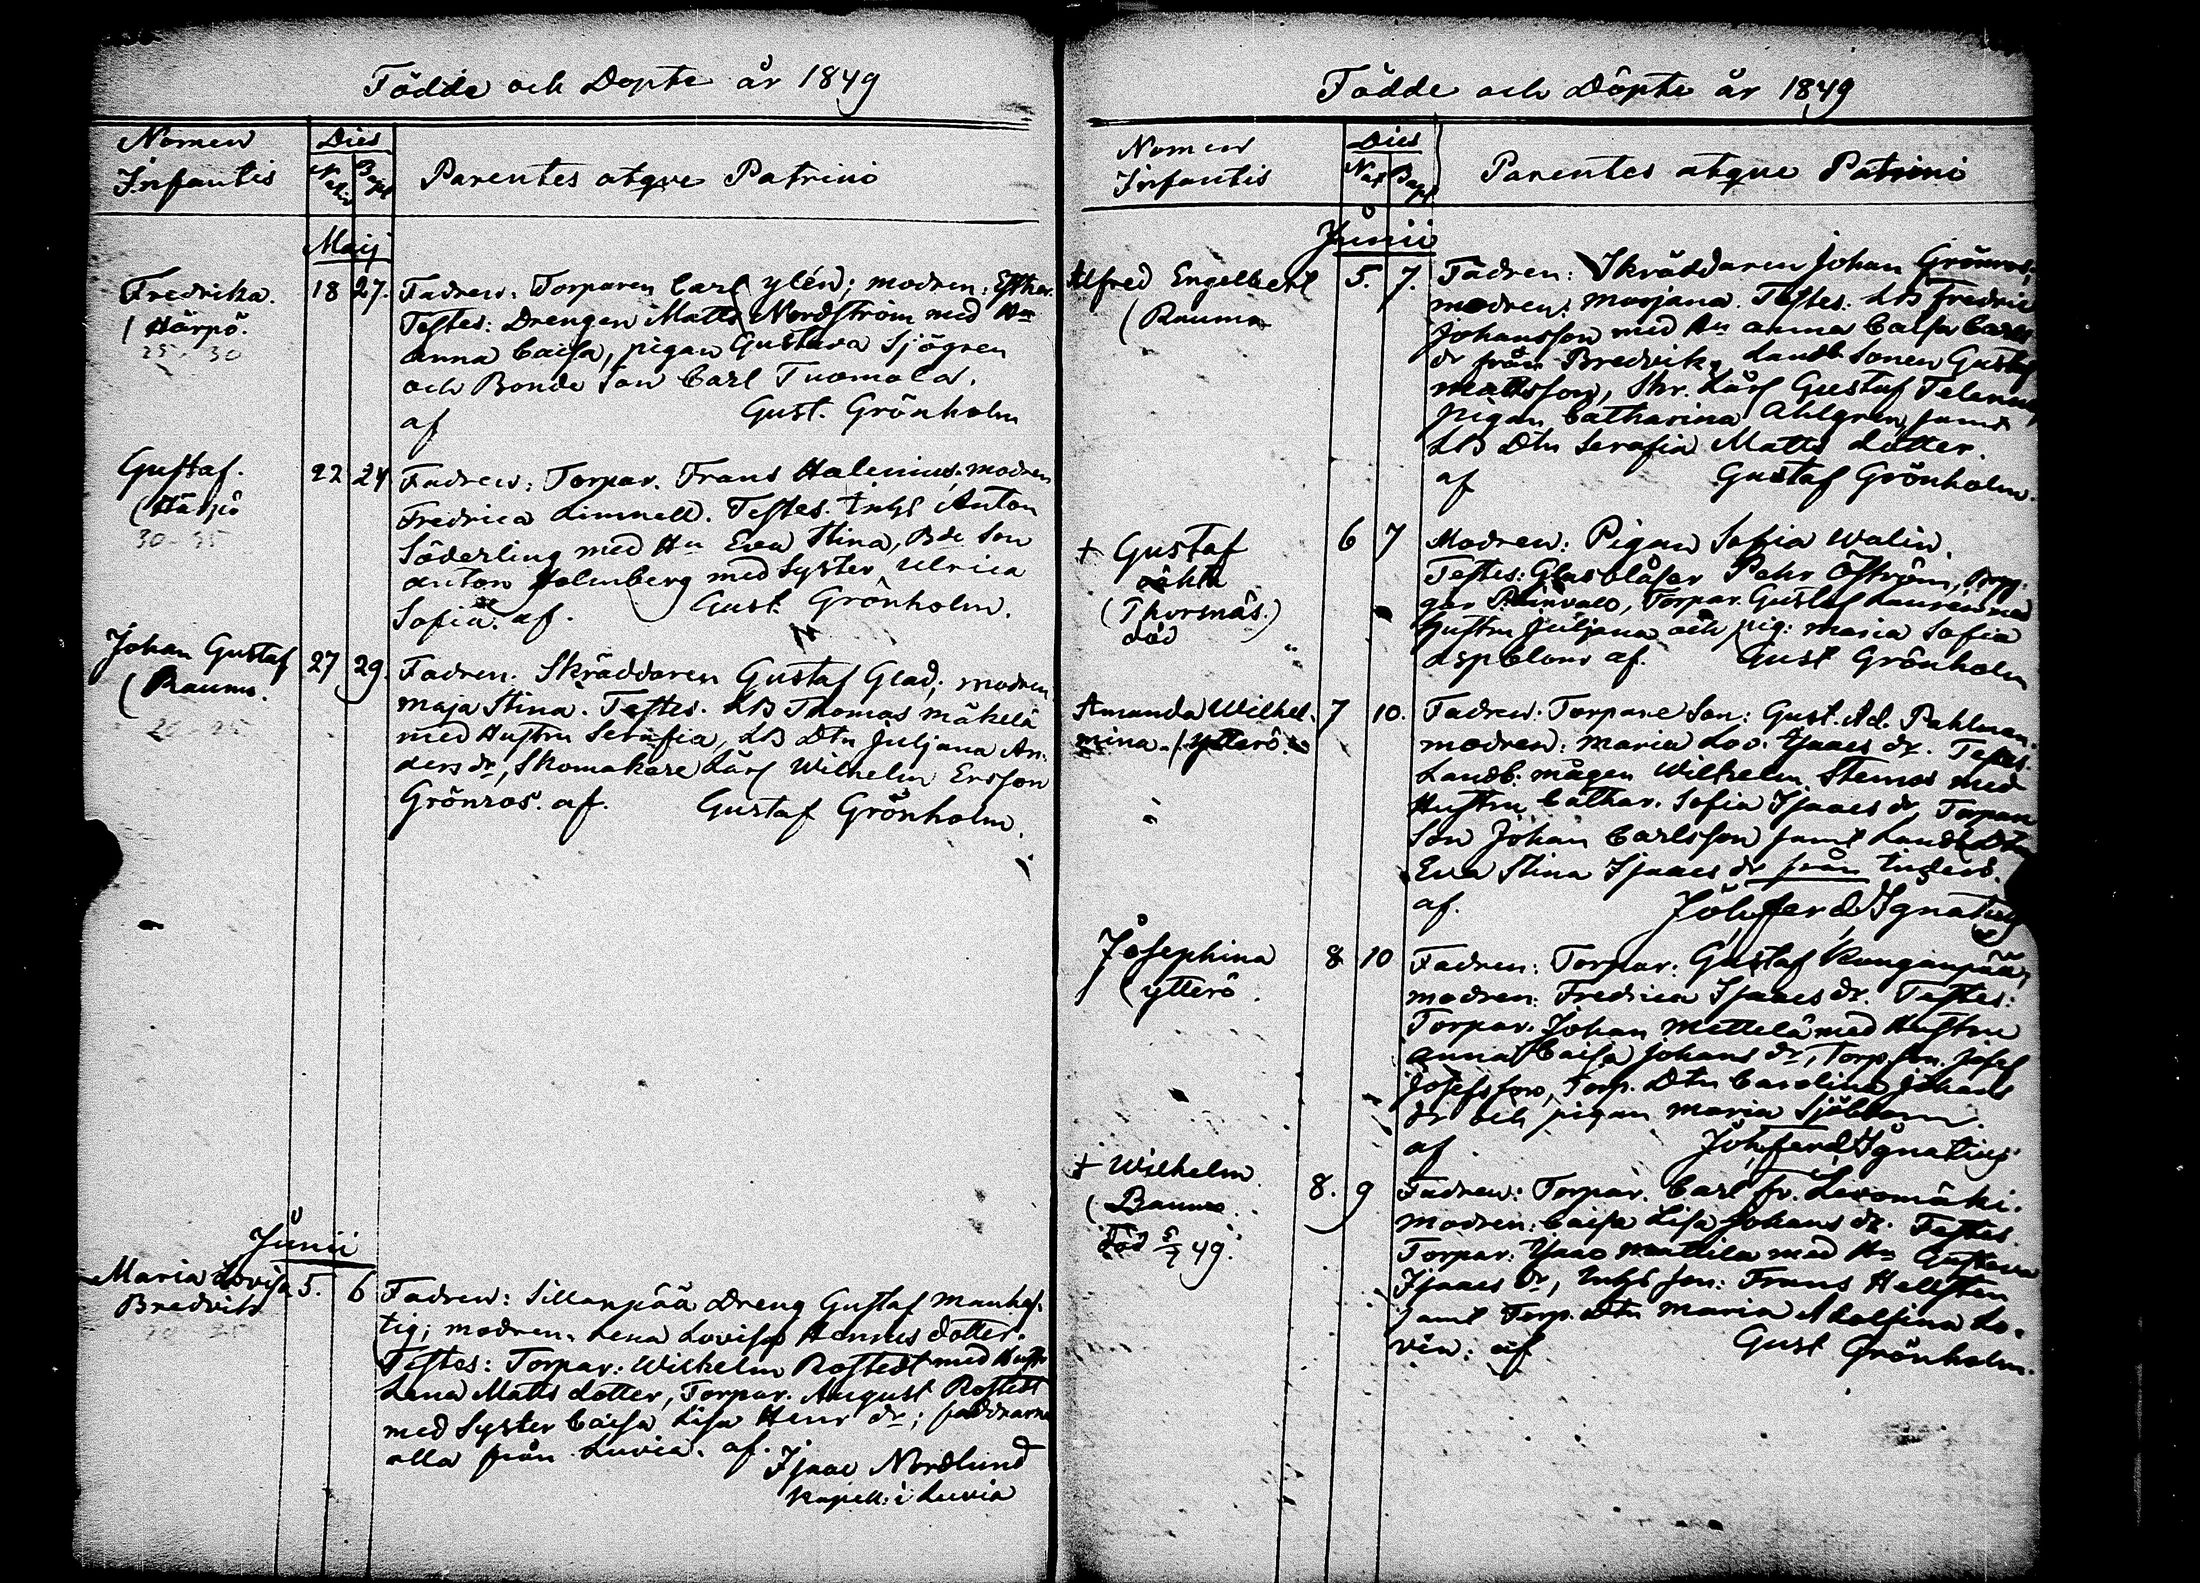 Födde och Döpte år 1849
Nomen Infantis
Dies
Nat. Bapt
Parentes atque Patrini
Maij
Fredrika.
(Härpö.
25-30
18 27.
Fadren: Torparen Carl Ylén; modren: Esther.
Testes: Drengen Matts Nordström med Hu
Anna Caisa, pigan Gustava Sjögren
och Bonde Son Carl Tuomola.
af Gust. Grönholm
Gustaf.
(Härpö
30-35
22 24
Fadren: Torpar. Frans Halenius, modren
Fredrica Linnell. Testes. Inhs Anton
Söderling med Hu Eva Stina, Bde Son
Anton Holmberg med Syster Ulrica
Sofia. af. Gust. Grönholm.
Johan Gustaf
(Raumo.
27 29.
Fadren: Skräddaren Gustaf Glad; modren
Maja Stina. Testes. LB Thomas Mäkelä
med Hustru Serafia, LB Dtn Juljana An-
ders dr, Skomakare Lärl Wilhelm Ersson
Grönros. af. Gustaf Grönholm.
Junii
Maria Lovisa
Bredvik
5. 6
Fadren: Sillanpää Dreng Gustaf Manhaf-
tig; modren. Lena Lovisa Henriks dotter.
Testes: Torpar: Wilhelm Rostedt med Hustr
Lena Matts dotter, Torpar. August Rostedt
med Syster Caisa Lisa Henr dr; faddrarne
alla från Luvia. af. Isaac Nordlund
Kapell: i Luvia
Födde och Döpte år 1849
Nomen Infantis
Dies
Nat Bapt
Parentes atque Patrini
Junii
Alfred Engelbert
(Rauma
5. 7.
Fadren: Skräddaren Johan Grönros;
modren: Marjana. Testes. LB Fredric
Johansson med Hu Anna Caisa Carls
dr från Bredvik, Landb Sonen Gustaf
Mattsson, Skr. Lärl Gustaf
pigan Catharina Ahlgren, samt
LB Dtn Serafia Matts dotter.
af Gustaf Grönholm.
+ Gustaf
oäkta
(Thorsnäs.)
död
6 7
Modren: Pigan Sofia Walin.
Testes: Glasblåsar Pehr Öström, Bryg-
gar Reinvall, Torpar. Gustaf Laurén med
Hustru Juljana och pig: Maria Sofia
Aspblom af. Gust Grönholm
Amanda Wilhel-
mina. (Ytterö.
7 10.
Fadren: Torpare Son: Gust. Ad. Pahlman.
modren: Maria Lov. Isaacs dr. Testes.
Landb. mågen Wilhelm Stenros med
Hustru Cathar. Sofia Isaacs dr Torpare
Son Johan Carlsson samt Landb Dtn
Eva Stina Isaacs dr från
af. Joh. Ferd. Ignatius
Josephina
(Ytterö.
8 10
Fadren: Torpar: Gustaf Kanganpää,
modren: Fredrica Isaacs dr. Testes:
Torpar. Johan Mettelä med Hustru
Anna Caisa Johans dr, Torp. Son. Josef
Josefsson, Torp. Dtn Carolina Johans
dr och pigan Maria Sjöblom.
af Joh. Ferd. Ignatius
+ Wilhelm
(Raumo
död 5/7 49.
8. 9
Fadren: Torpar. Carl Fr. Levomäki.
modren: Caisa Lisa Johans dr. Testes.
Torpar: Isaac Mattila med Hu Gustava
Isaacs dr, Inhs Son: Frans Hellsten
samt Torp. Dtn Maria Adolfina Lo-
vén: af Gust Grönholm.